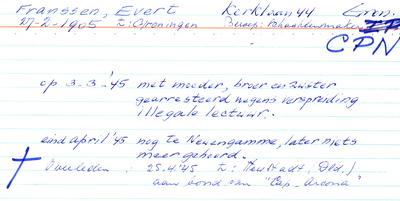 Franssen, Evert Kerklaan 44 Gron.
27-2-1905 te: Groningen Beroep: Behaaldersmaker
CPN
op 3-3-'45 met moeder, broer en zuster
gearresteerd wegens verspreiding
illegale lectuur.
eind april '45 nog te Neuengamme, later niets
meer gehoord.
Overleden: 25.4.'45 te: Neustadt, (Dld.)
aan boord van "Cap-Arcona"